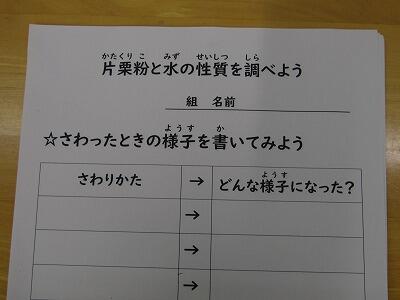 片栗粉と水の性質を調べよう
組 名前
☆さわったときの様子を書いてみよう
さわりかた → どんな様子になった?
→
→
→